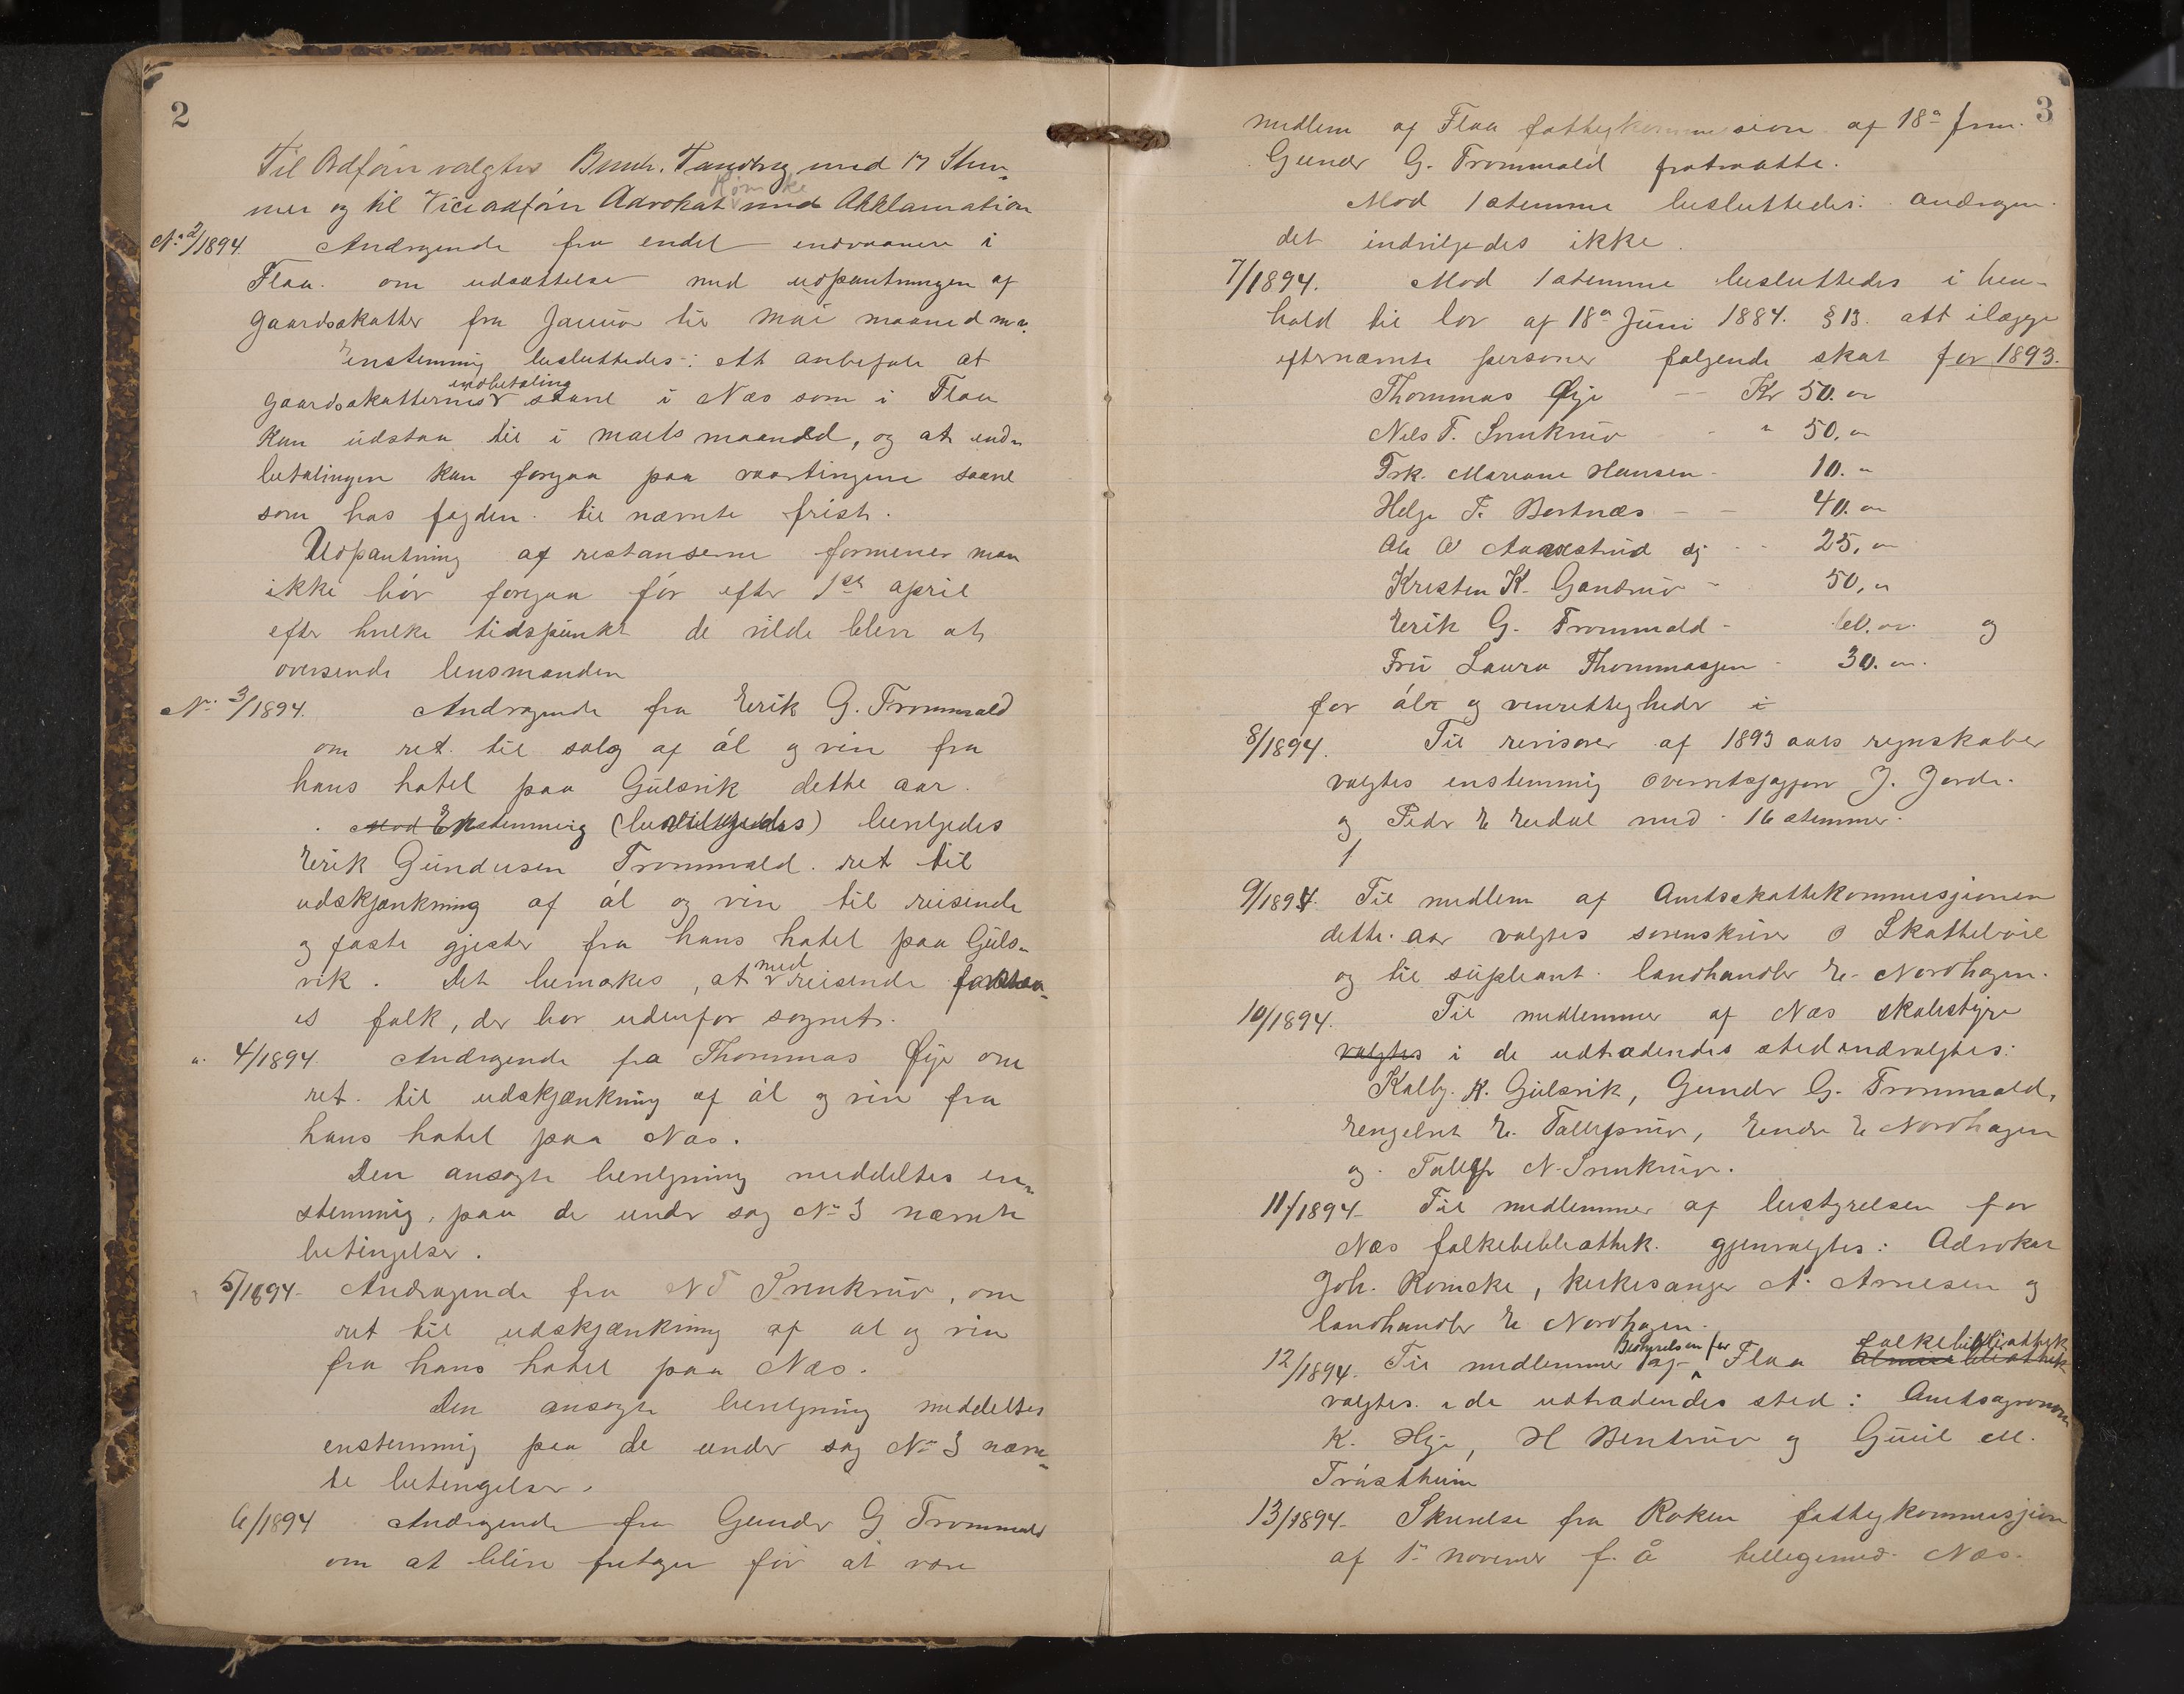 2
Til Ordfører valgtes Tandberg med 17 Stem-
Rømcke
mer og til Viceordfører Advokat med Akklamation
No 2/1894. Andragende fra endel indvaanere i
Flaa. om udsættelse med udpantningen af
gaardsskatter fra Januar til mai maaned m.v.
Enstemmig besluttedes: att anbefale at
indbetaling
gaardsskatternes saavel i Næs som i Flaa
kan udstaa til i marts maaned, og at ind-
betalingen kan foregaa paa vaartingene saavel
som hos fogden til nævnte frist.
Udpantning af restanserne formener man
ikke bör foregaa för efter 1ste april
efter hvilke tidspunkt de vilde blive at
oversende lensmanden
No. 3/1894. Andragende fra Erik G. Trommald
om ret til salg af öl og vin fra
hans hotel paa Gulsvik dette aar.
Mod Enstemmig (bevilgedes) bevilgedes
Erik Gundersen Trommald ret til
udskjænkning af öl og vin til reisende
og faste gjester fra hans hotel paa Guls-
med
vik. Det bemærkes, at reisende forstaa-
es folk, der bor udenfor sognet.
" 4/1894. Andragende fra Thommas Øije om
ret til udskjænkning af öl og vin fra
hans hotel paa Næs.
Den ansøgte bevilgning meddeltes en-
stemmig, paa de under sag No 3 nævnte
betingelser.
" 5/1894- Andragende fra N T Smukruv, om
ret til udskjænkning af öl og vin
fra hans hotel paa Næs.
Den ansøgte bevilgning meddeltes
enstemmig paa de under sag No 3 nævn-
te betingelser.
6/1894 Andragende fra Gunder G Trommald
om at blive fritagen for at være
3
medlem af Flaa fattigkommission af 18de Jan.
Gunder G. Trommald fratraatte.
Mod 1 stemme besluttedes: andragen-
det indvilgedes ikke.
7/1894. Mod 1 stemme besluttedes i hen-
hold til lov af 18de Juni 1884. § 13. att ilægge
efternævnte personer følgende skat for 1893.
Thommas Øije -- Kr 50. "
Nils T. Smukruv - " 50. "
Frk. Mariane Hansen - 10. "
Helge T. Bortnæs - - 40. "
Ole O Aavestrud - - 25. "
Kristen K. Gandruv - 50. "
Erik G. Trommald - 60. " og
Fru Laura Thommasjen - 30. "
for öl og vinrettigheder i
8/1894. Til revisorer af 1893 aars regnskaber
valgtes enstemmig overretsjagfører J. Jorde.
og Peder E Eidal med 16 stemmer.
1
9/1894. Til medlem af Amtsskattekommisjonen
dette aar valgtes sorenskriver O Skattebøl
og til supleant landhandler E. Nordhagen.
10/1894. Til medlemmer af Næs skolestyre
valgtes i de udtrædendes sted indvalgtes:
Kolbj. K. Gulsvik, Gunder G. Trommald,
Engebret E. Tollefsruv, Endre E Nordhagen
og Tollef N. Smukruv.
11/1894- Til medlemmer af bestyrelsen for
Næs folkebibliothek gjenvalgtes: Advokat
Joh. Rømcke, kirkesanger A. Arnesen og
landhandler E Nordhagen.
Bestyrelsen for folkebibliothek
12/1894. Til medlemmer af Flaa
valgtes i de udtrædendes sted: Amtsagronom
K. Hje, H Bentruv og Guul M.
Tröstheim
13/1894- Skrivelse fra Røken fattigkommisjon
af 1ste november f. Å Næs.